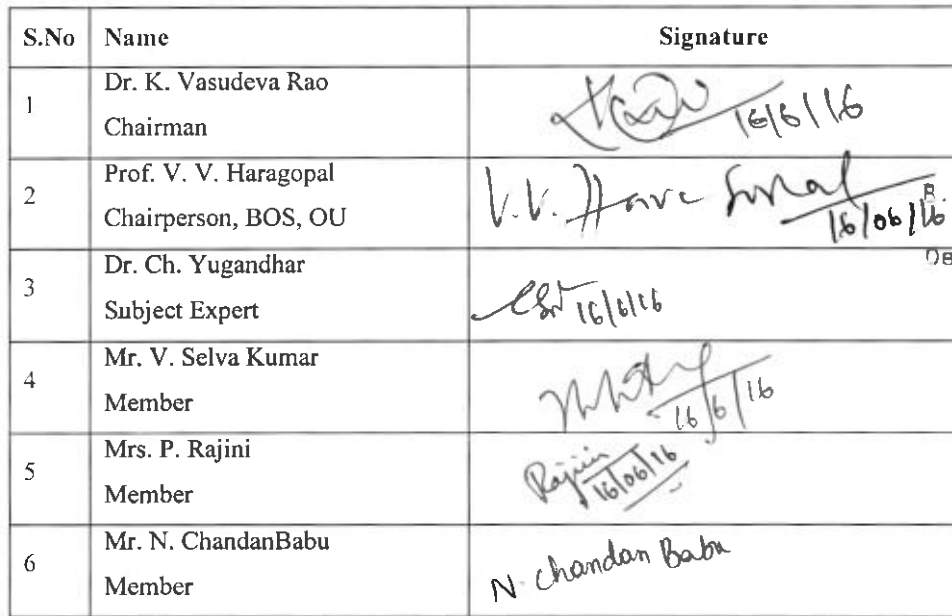 S.No Name Signature
1 Dr. K. Vasudeva Rao
Chairman
16/6/16
2 Prof. V. V. Haragopal
Chairperson, BOS, OU
V.V. Hara Gopal
16/06/16
3 Dr. Ch. Yugandhar
Subject Expert
16/6/16
4 Mr. V. Selva Kumar
Member
16/6/16
5 Mrs. P. Rajini
Member
Rajini
16/06/16
6 Mr. N. ChandanBabu
Member
N. Chandan Babu